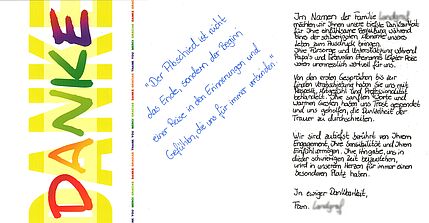 DANKE
"Der Abschied ist nicht
das Ende, sondern der Beginn
einer Reise in den Erinnerungen und
Gefühlen, die uns für immer verbinden."
Im Namen der Familie
möchten wir Ihnen unsere tiefste Dankbarkeit
für Ihre einfühlsame Begleitung während
eines der schwierigsten Momente unseres
Lebens zum Ausdruck bringen.
Ihre Fürsorge und Unterstützung während
Papa's und letzter Reise
waren unermesslich wertvoll für uns.
Von den ersten Gesprächen bis zur
finalen Verabschiedung haben Sie uns mit
Respekt, Mitgefühl und Professionalität
behandelt. Ihre sanften Worte und
warmen Gesten haben uns Trost gespendet
und uns geholfen, die Dunkelheit der
Trauer zu durchschreiten.
Wir sind zutiefst berührt von Ihrem
Engagement, Ihre Sensibilität und Ihrem
Einfühlvermögen. Ihre Hingabe, uns in
dieser schwierigen Zeit beizustehen,
wird in unseren Herzen für immer einen
besonderen Platz haben.
In ewiger Dankbarkeit,
Fam.